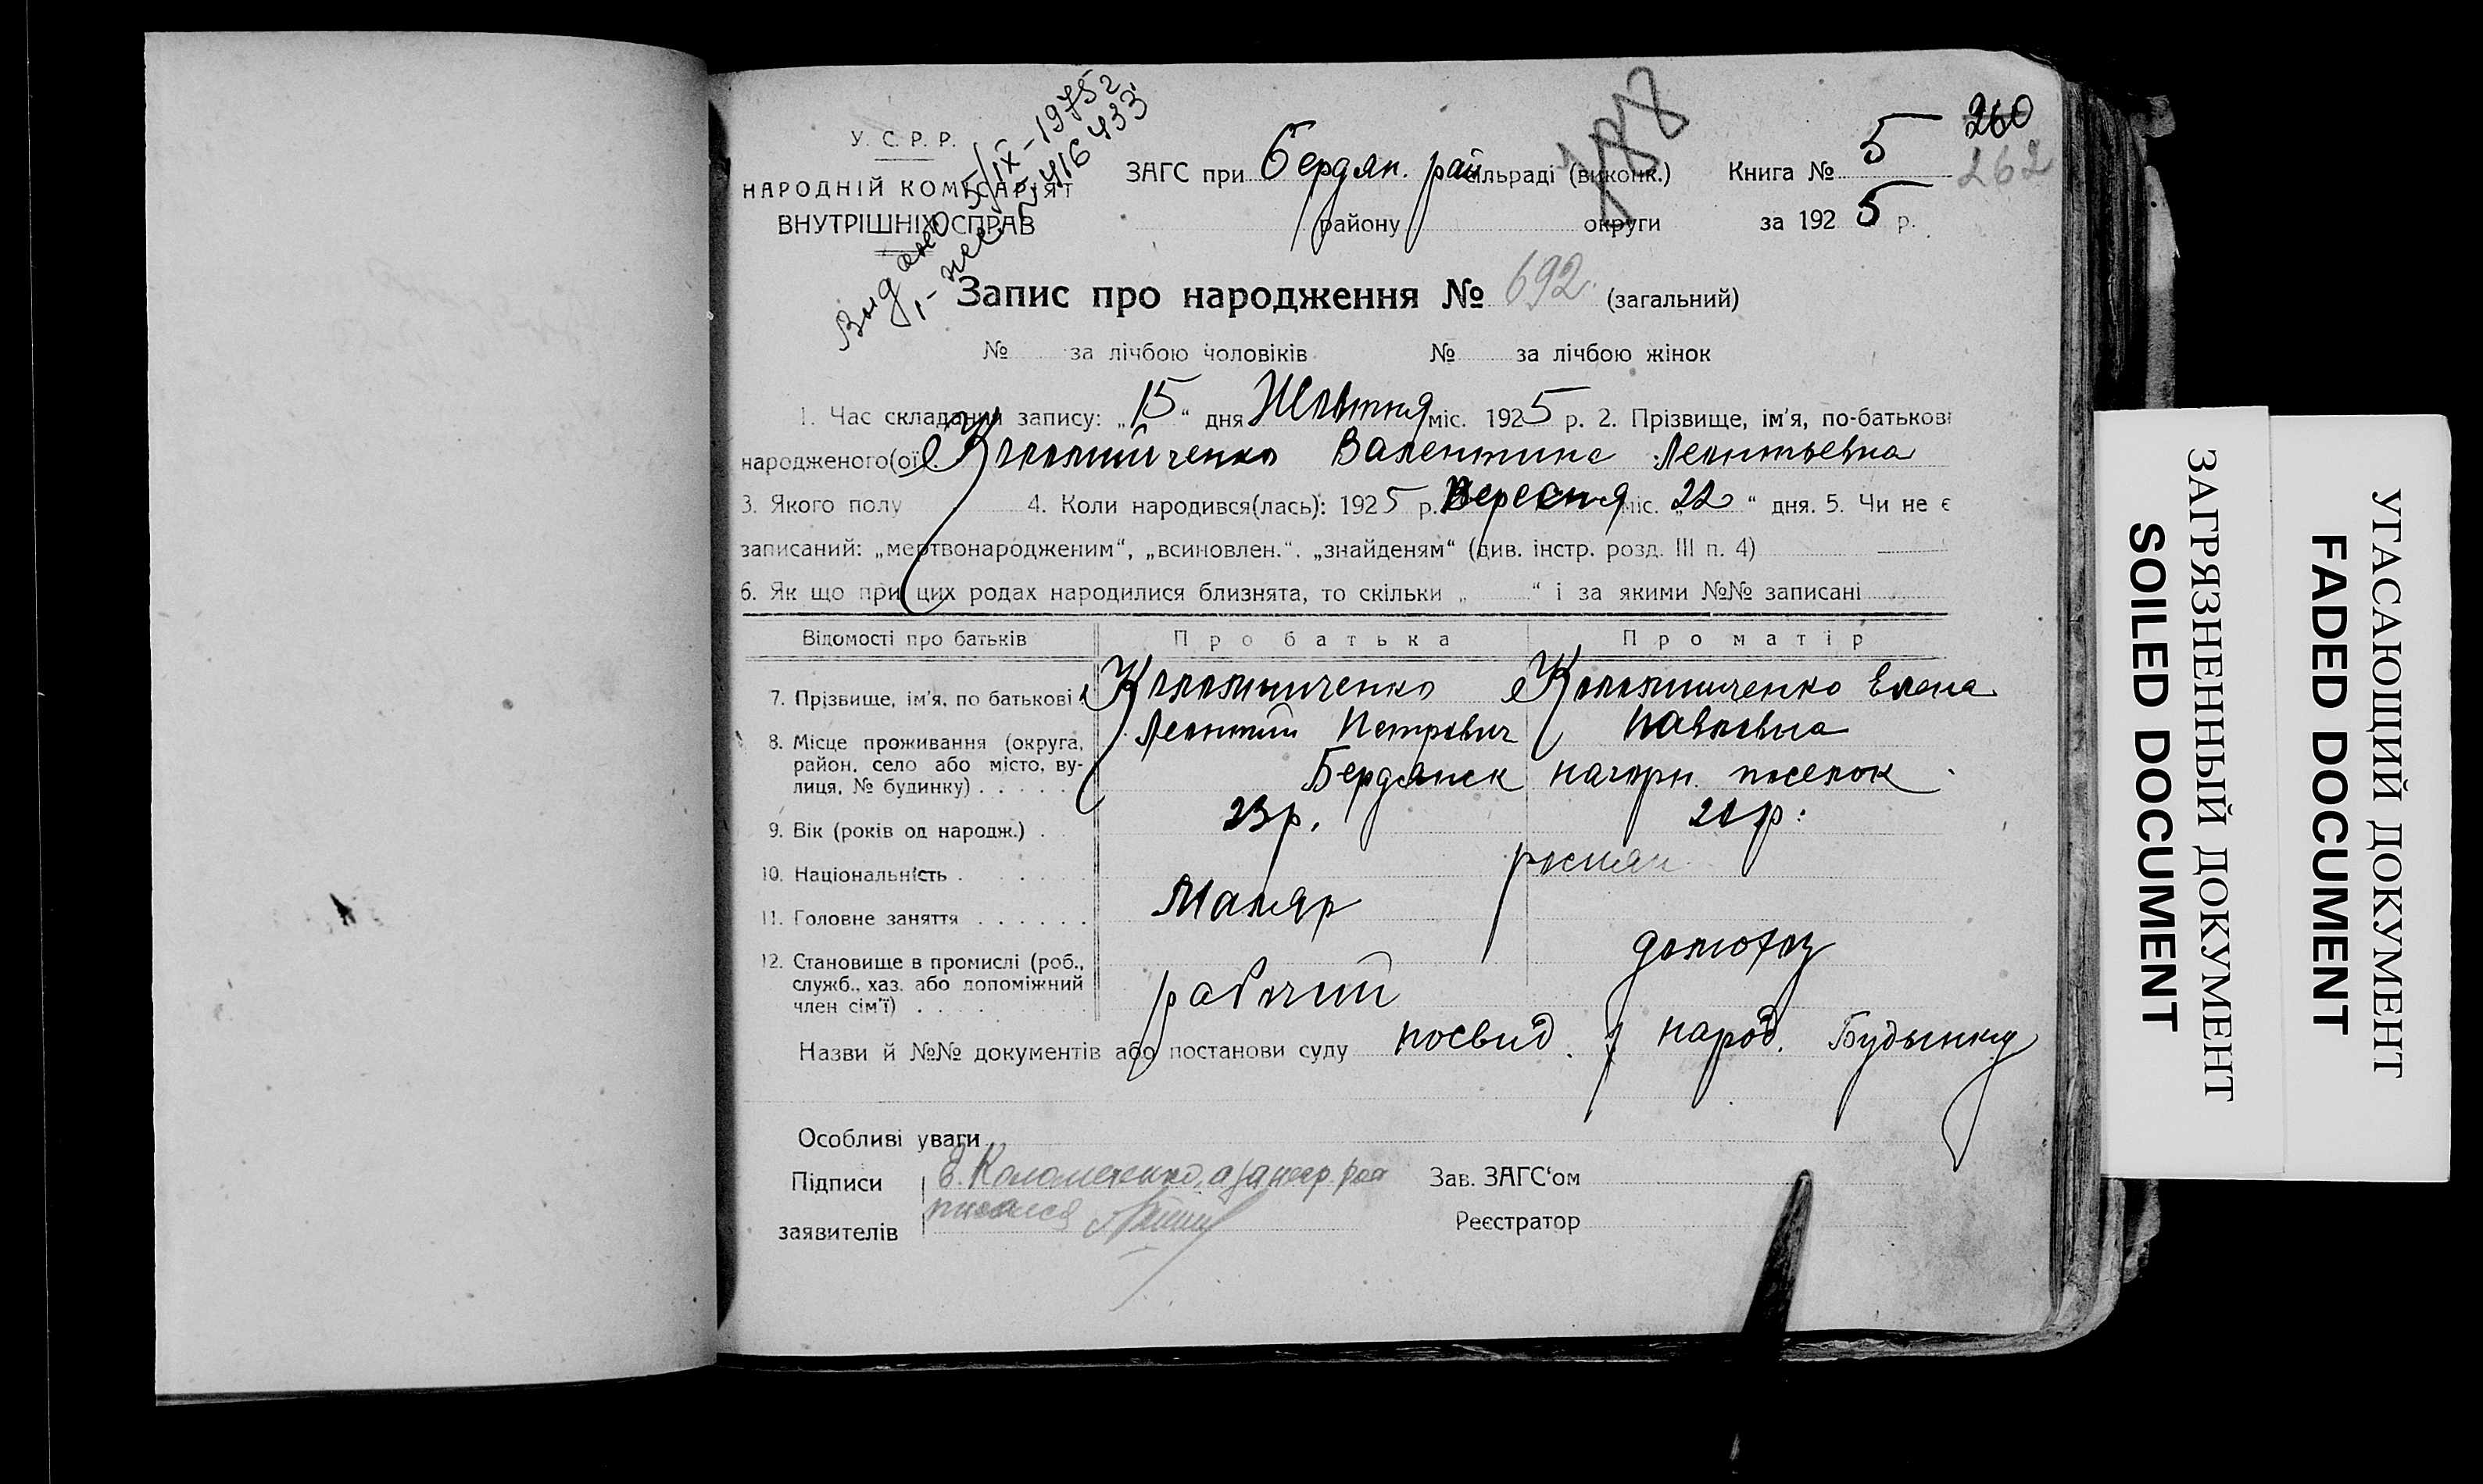 Выдано 5/IX-1975г
У. С. Р. Р.
НАРОДНІЙ КОМІСАРІЯТ
ВНУТРІШНІХ СПРАВ
ЗАГС при Бердян. рай сільраді (виконк.)
району округи
Книга № 5
за 1925 р.
260
262
Запис про народження № 692 (загальний)
№ за лічбою чоловіків № за лічбою жінок
1. Час складання запису: „15“ дня Жовтня міс. 1925 р. 2. Прізвище, ім'я, по-батькові
народженого(ої) Коломийченко Валентина Леонтьевна
3. Якого полу 4. Коли народився(лась): 1925 р. Вересня міс. „22“ дня. 5. Чи не є
записаний: „мертвонародженим“, „всиновлен.“. „знайденям“ (див. інстр. розд. III п. 4)
6. Як що при цих родах народилися близнята, то скільки „ “ і за якими №№ записані
Відомості про батьків Про батька Про матір
7. Прізвище, ім'я, по батькові Коломийченко Коломийченко Елена
Леонтий Петрович Павловна
8. Місце проживання (округа,
район, село або місто, ву-
лиця, № будинку) Бердянск нагорн. поселок
9. Вік (років од народж.) 23 р.
10. Національність росиян
11. Головне заняття Маляр
12. Становище в промислі (роб.,
служб., хаз. або допоміжний
член сім'ї) рабочий
Назви й №№ документів або постанови суду посвид. народ. Будынку
Особливі уваги
Підписи
заявителів
Зав. ЗАГС'ом
Реєстратор
ЗАГРЯЗНЕННЫЙ ДОКУМЕНТ
SOILED DOCUMENT
УГАСАЮЩИЙ ДОКУМЕНТ
FADED DOCUMENT